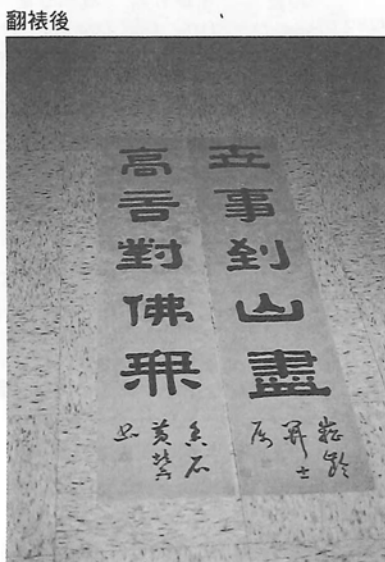 翻裱後
世事到山盡
高言對佛無